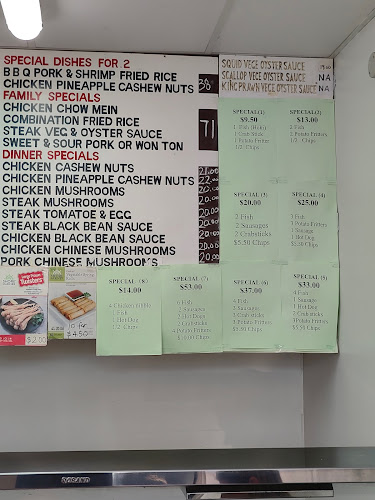 SPECIAL DISHES FOR 2
B B Q PORK & SHRIMP FRIED RICE
CHICKEN PINEAPPLE CASHEW NUTS
FAMILY SPECIALS
CHICKEN CHOW MEIN
COMBINATION FRIED RICE
STEAK VEG & OYSTER SAUCE
SWEET & SOUR PORK OR WON TON
71
DINNER SPECIALS
CHICKEN CASHEW NUTS
CHICKEN PINEAPPLE CASHEW NUTS
CHICKEN MUSHROOMS
STEAK MUSHROOMS
STEAK TOMATOE & EGG
STEAK BLACK BEAN SAUCE
CHICKEN BLACK BEAN SAUCE
CHICKEN CHINESE MUSHROOMS
PORK CHINESE MUSHROOMS
SQUID VEGE OYSTER SAUCE
SCALLOP VEGE OYSTER SAUCE NA
KING PRAWN VEGE OYSTER SAUCE NA
SPECIAL (1)
$9.50
1 Fish (Hoki)
1 Crab Stick
1 Potato Fritter
1/2 Chips
SPECIAL (2)
$13.00
2 Fish
2 Potato Fritters
1/2 Chips
SPECIAL (3)
$20.00
2 Fish
2 Sausages
2 Crabsticks
$5.50 Chips
SPECIAL (4)
$25.00
3 Fish
3 Potato Fritters
1 Sausage
1 Hot Dog
$5.50 Chips
SPECIAL (8)
$14.00
4 Chicken Nibble
1 Fish
1 Hot Dog
1/2 Chips
SPECIAL (7)
$53.00
6 Fish
2 Sausages
2 Hot Dogs
Crab sticks
4 Potato Fritters
$10.00 Chips
SPECIAL (6)
$37.00
4 Fish
Sausages
Hot Dog
Crab sticks
Potato Fritters
Chips
SPECIAL (5)
$33.00
4 Fish
1 Sausage
1 Hot Dog
2 Crab sticks
Potato Fritters
$5.50 Chips
Twisters
$2.00
10 for
$4.50